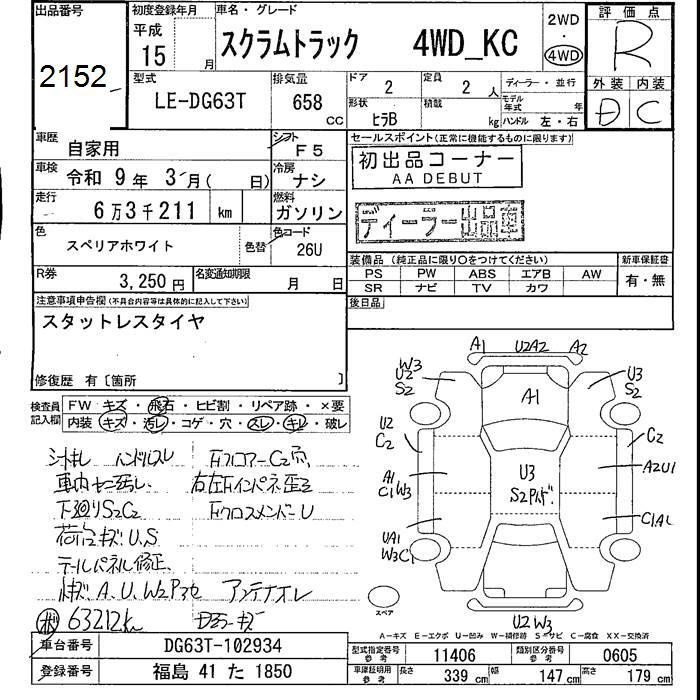 出品番号
2152
初度登録年月
平成
15 月
車名・グレード
スクラムトラック 4WD_KC
2WD
・
4WD
評価点
R
外装 内装
D C
型式
LE-DG63T
排気量
658 CC
ドア
2
定員
2 人
ディーラー・並行
形状
ヒラB
積載
kg
モデル年式 年
ハンドル 左・右
車歴
自家用
シフト
F5
車検
令和 9年 3月( 日)
冷房
ナシ
走行
6万3千211 km
燃料
ガソリン
色
スペリアホワイト
色替
色コード
26U
R券
3,250円
名変通知期限
月 日
セールスポイント(正常に機能するものに限ります)
初出品コーナー
AA DEBUT
ディーラー出品車
装備品(純正品に限り○をつけてください)
新車保証書
PS PW ABS エアB AW
SR ナビ TV カワ
有・無
後日品
注意事項申告欄(不具合内容等は具体的に記入して下さい)
スタットレスタイヤ
修復歴 有〔箇所 〕
検査員記入欄
FW キズ・飛石・ヒビ割・リペア跡・×要
内装 キズ・汚レ・コゲ・穴・スレ・キレ・破レ
ハンドルスレ
下廻りS2C2
荷台キズU.S
テールパネル修正、
A.U.W2P3セ アンテナオレ
63212km
A1 U2A2 A2
W3
U2
S2
U3
S2
A1
U2
C2
C2
A1
C1W3
U3
S2
A2U1
UA1
W3C1
C1A2
スペア
U2W3
A-キズ E-エクボ U-凹み W-補修跡 S-サビ C-腐食 XX-交換済
車台番号
DG63T-102934
登録番号
福島 41 た 1850
型式指定番号
参考
11406
類別区分番号
参考
0605
車庫証明用
参考
長さ 339 cm 幅 147 cm 高さ 179 cm